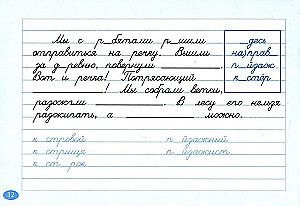 Мы с р_бятами р_шили
отправиться на речку. Вышли
за д_ревню, повернули ________.
Вот и речка! Потрясающий
________! Мы собрали ветки,
разожгли ________. В лесу его нельзя
разжигать, а ________ можно.
_десь
на)прав_
п_йзаж
к_стёр
к_стровой
к_стрище
к_ст_рок
п_йзажный
п_йзажист
12